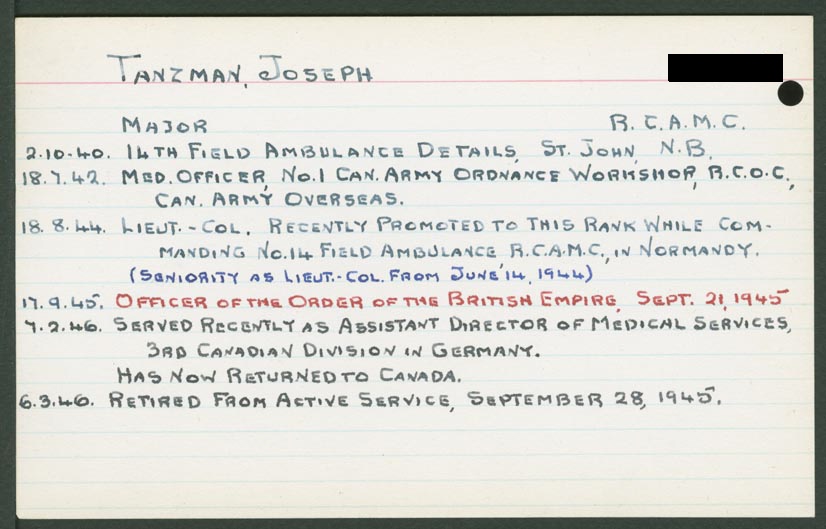 TANZMAN, JOSEPH
MAJOR R.C.A.M.C.
2.10.40. 14TH FIELD AMBULANCE DETAILS, ST. JOHN, N.B.
18.7.42. MED. OFFICER, NO.1 CAN. ARMY ORDNANCE WORKSHOP, R.C.O.C.,
CAN. ARMY OVERSEAS.
18.8.44. LIEUT.-COL. RECENTLY PROMOTED TO THIS RANK WHILE COM-
MANDING NO.14 FIELD AMBULANCE, R.C.A.M.C., IN NORMANDY.
(SENIORITY AS LIEUT.-COL. FROM JUNE 14, 1944)
17.9.45. OFFICER OF THE ORDER OF THE BRITISH EMPIRE, SEPT. 21, 1945
7.2.46. SERVED RECENTLY AS ASSISTANT DIRECTOR OF MEDICAL SERVICES,
3RD CANADIAN DIVISION IN GERMANY.
HAS NOW RETURNED TO CANADA.
6.3.46. RETIRED FROM ACTIVE SERVICE, SEPTEMBER 28, 1945.